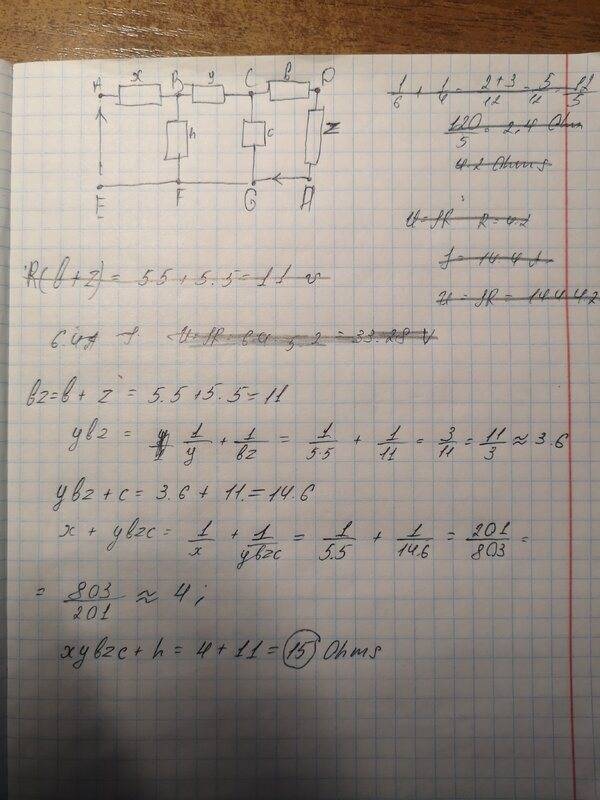 A x B y C b D
h c z
E F G H
1/6 + 1/4 = 2+3/12 = 5/12 = 12/5
120/5 = 2.4 Ohm
4.2 Ohms
U=IR R=4.2
I=14.4 A
U=IR=14.4 4.2
R(b+z) = 5.5+5.5=11
6.4A U=IR=6.4 · 5.2 = 33.28 V
bz=b+z = 5.5+5.5=11
ybz = 1/y + 1/bz = 1/5.5 + 1/11 = 3/11 = 11/3 ≈ 3.6
ybz+c = 3.6 + 11 = 14.6
x + ybzc = 1/x + 1/ybzc = 1/5.5 + 1/14.6 = 201/803 =
= 803/201 ≈ 4;
xybzc+h = 4+11 = 15 Ohms